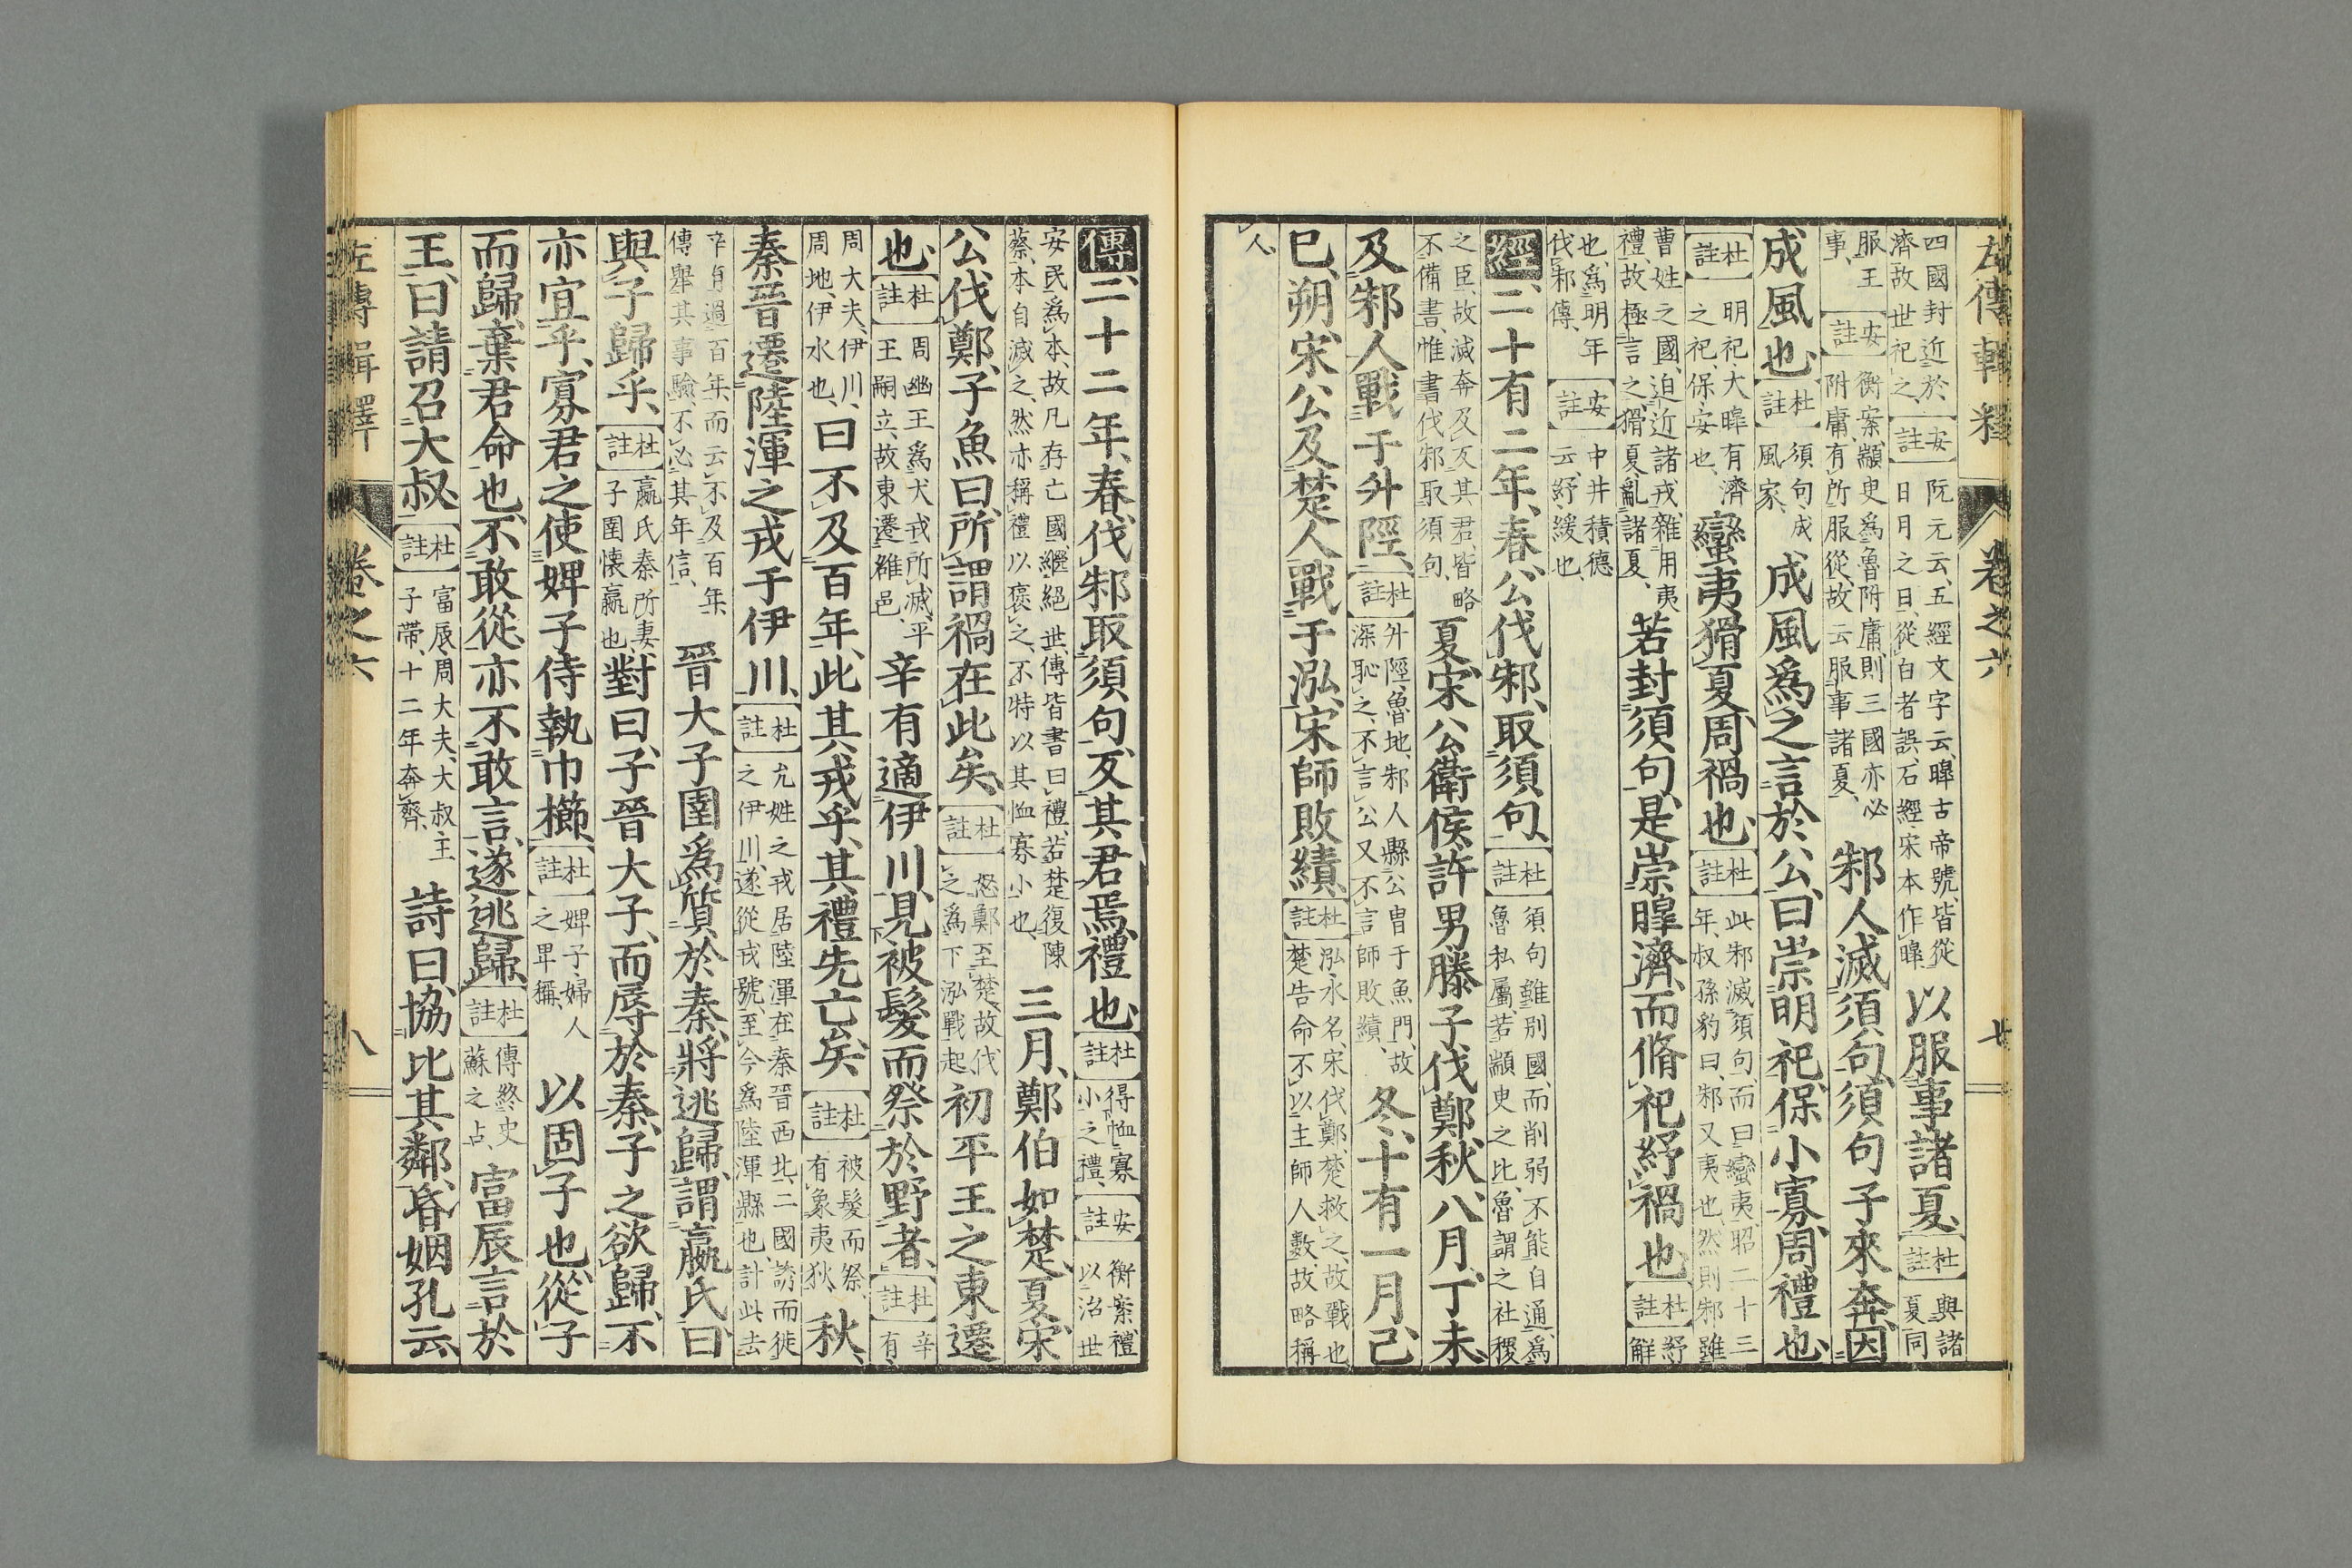 左傳輯釋 卷之六 七
四國封近於濟故世祀之、安註阮元云、五經文字云、皞古帝號、皆從日月之日、從白者誤、石經宋本作皞以服事諸夏、杜註與諸夏同
服王事、安註衡案、顓臾爲魯附庸、則三國亦必附庸有所服從、故云服事諸夏、邾人滅須句、須句子來奔、因
成風也、杜註須句、成風家、成風爲之言於公、曰崇明祀、保小寡、周禮也、
杜註明祀、大皞有濟之祀、保、安也、蠻夷猾夏、周禍也、杜註此邾滅須句、而曰蠻夷、昭二十三年、叔孫豹曰、邾又夷也、然則邾雖
曹姓之國、迫近諸戎、雜用夷禮、故極言之、猾夏、亂諸夏、若封須句、是崇皞濟、而脩祀紓禍也、杜註紓解
也、爲明年伐邾傳、安註中井積德云、紓、緩也、
經、二十有二年、春、公伐邾、取須句、杜註須句雖別國、而削弱不能自通、爲魯私屬、若顓臾之比、魯謂之社稷
之臣、故滅奔及反其君、皆略不備書、惟書伐邾取須句、夏、宋公衞侯許男滕子伐鄭、秋、八月、丁未、
及邾人戰于升陘、杜註升陘、魯地、邾人縣公冑于魚門、故深恥之、不言公、又不言師敗績、冬、十有一月、己
巳、朔、宋公及楚人戰于泓、宋師敗績、杜註泓、水名、宋伐鄭、楚救之、故戰也、楚告命不以主師人數、故略稱
人
傳、二十二年、春、伐邾取須句、反其君焉、禮也、杜註得恤寡小之禮、安註衡案、禮以治世
安民爲本、故凡存亡國、繼絕世、傳皆書曰禮、若楚復陳蔡、本自滅之、然亦稱禮以褒之、不特以其恤寡小也、三月、鄭伯如楚、夏、宋
公伐鄭、子魚曰、所謂禍在此矣、杜註怒鄭至楚、故伐之、爲下泓戰起初平王之東遷
也、杜註周幽王爲犬戎所滅、平王嗣立、故東遷雒邑、辛有適伊川、見被髮而祭於野者、杜註辛有、
周大夫、伊川、周地、伊水也、曰、不及百年、此其戎乎、其禮先亡矣、杜註被髮而祭、有象夷狄、秋、
秦晉遷陸渾之戎于伊川、杜註允姓之戎、居陸渾、在秦晉西北、二國誘而徙之伊川、遂從戎號、至今爲陸渾縣也、計此去
辛有過百年、而云不及百年、傳舉其事驗、不必其年信、晉大子圉爲質於秦、將逃歸、謂嬴氏曰、
與子歸乎、杜註嬴氏、秦所妻子圉、懷嬴也對曰、子晉大子、而辱於秦、子之欲歸、不
亦宜乎、寡君之使婢子侍執巾櫛、杜註婢子、婦人之卑稱、以固子也、從子
而歸、棄君命也、不敢從、亦不敢言、遂逃歸、杜註傳終史蘇之占、富辰言於
王、曰請召大叔、杜註富辰、周大夫、大叔、王子帶、十二年奔齊、詩曰、協比其鄰、昏姻孔云、
左傳輯釋 卷之六 八